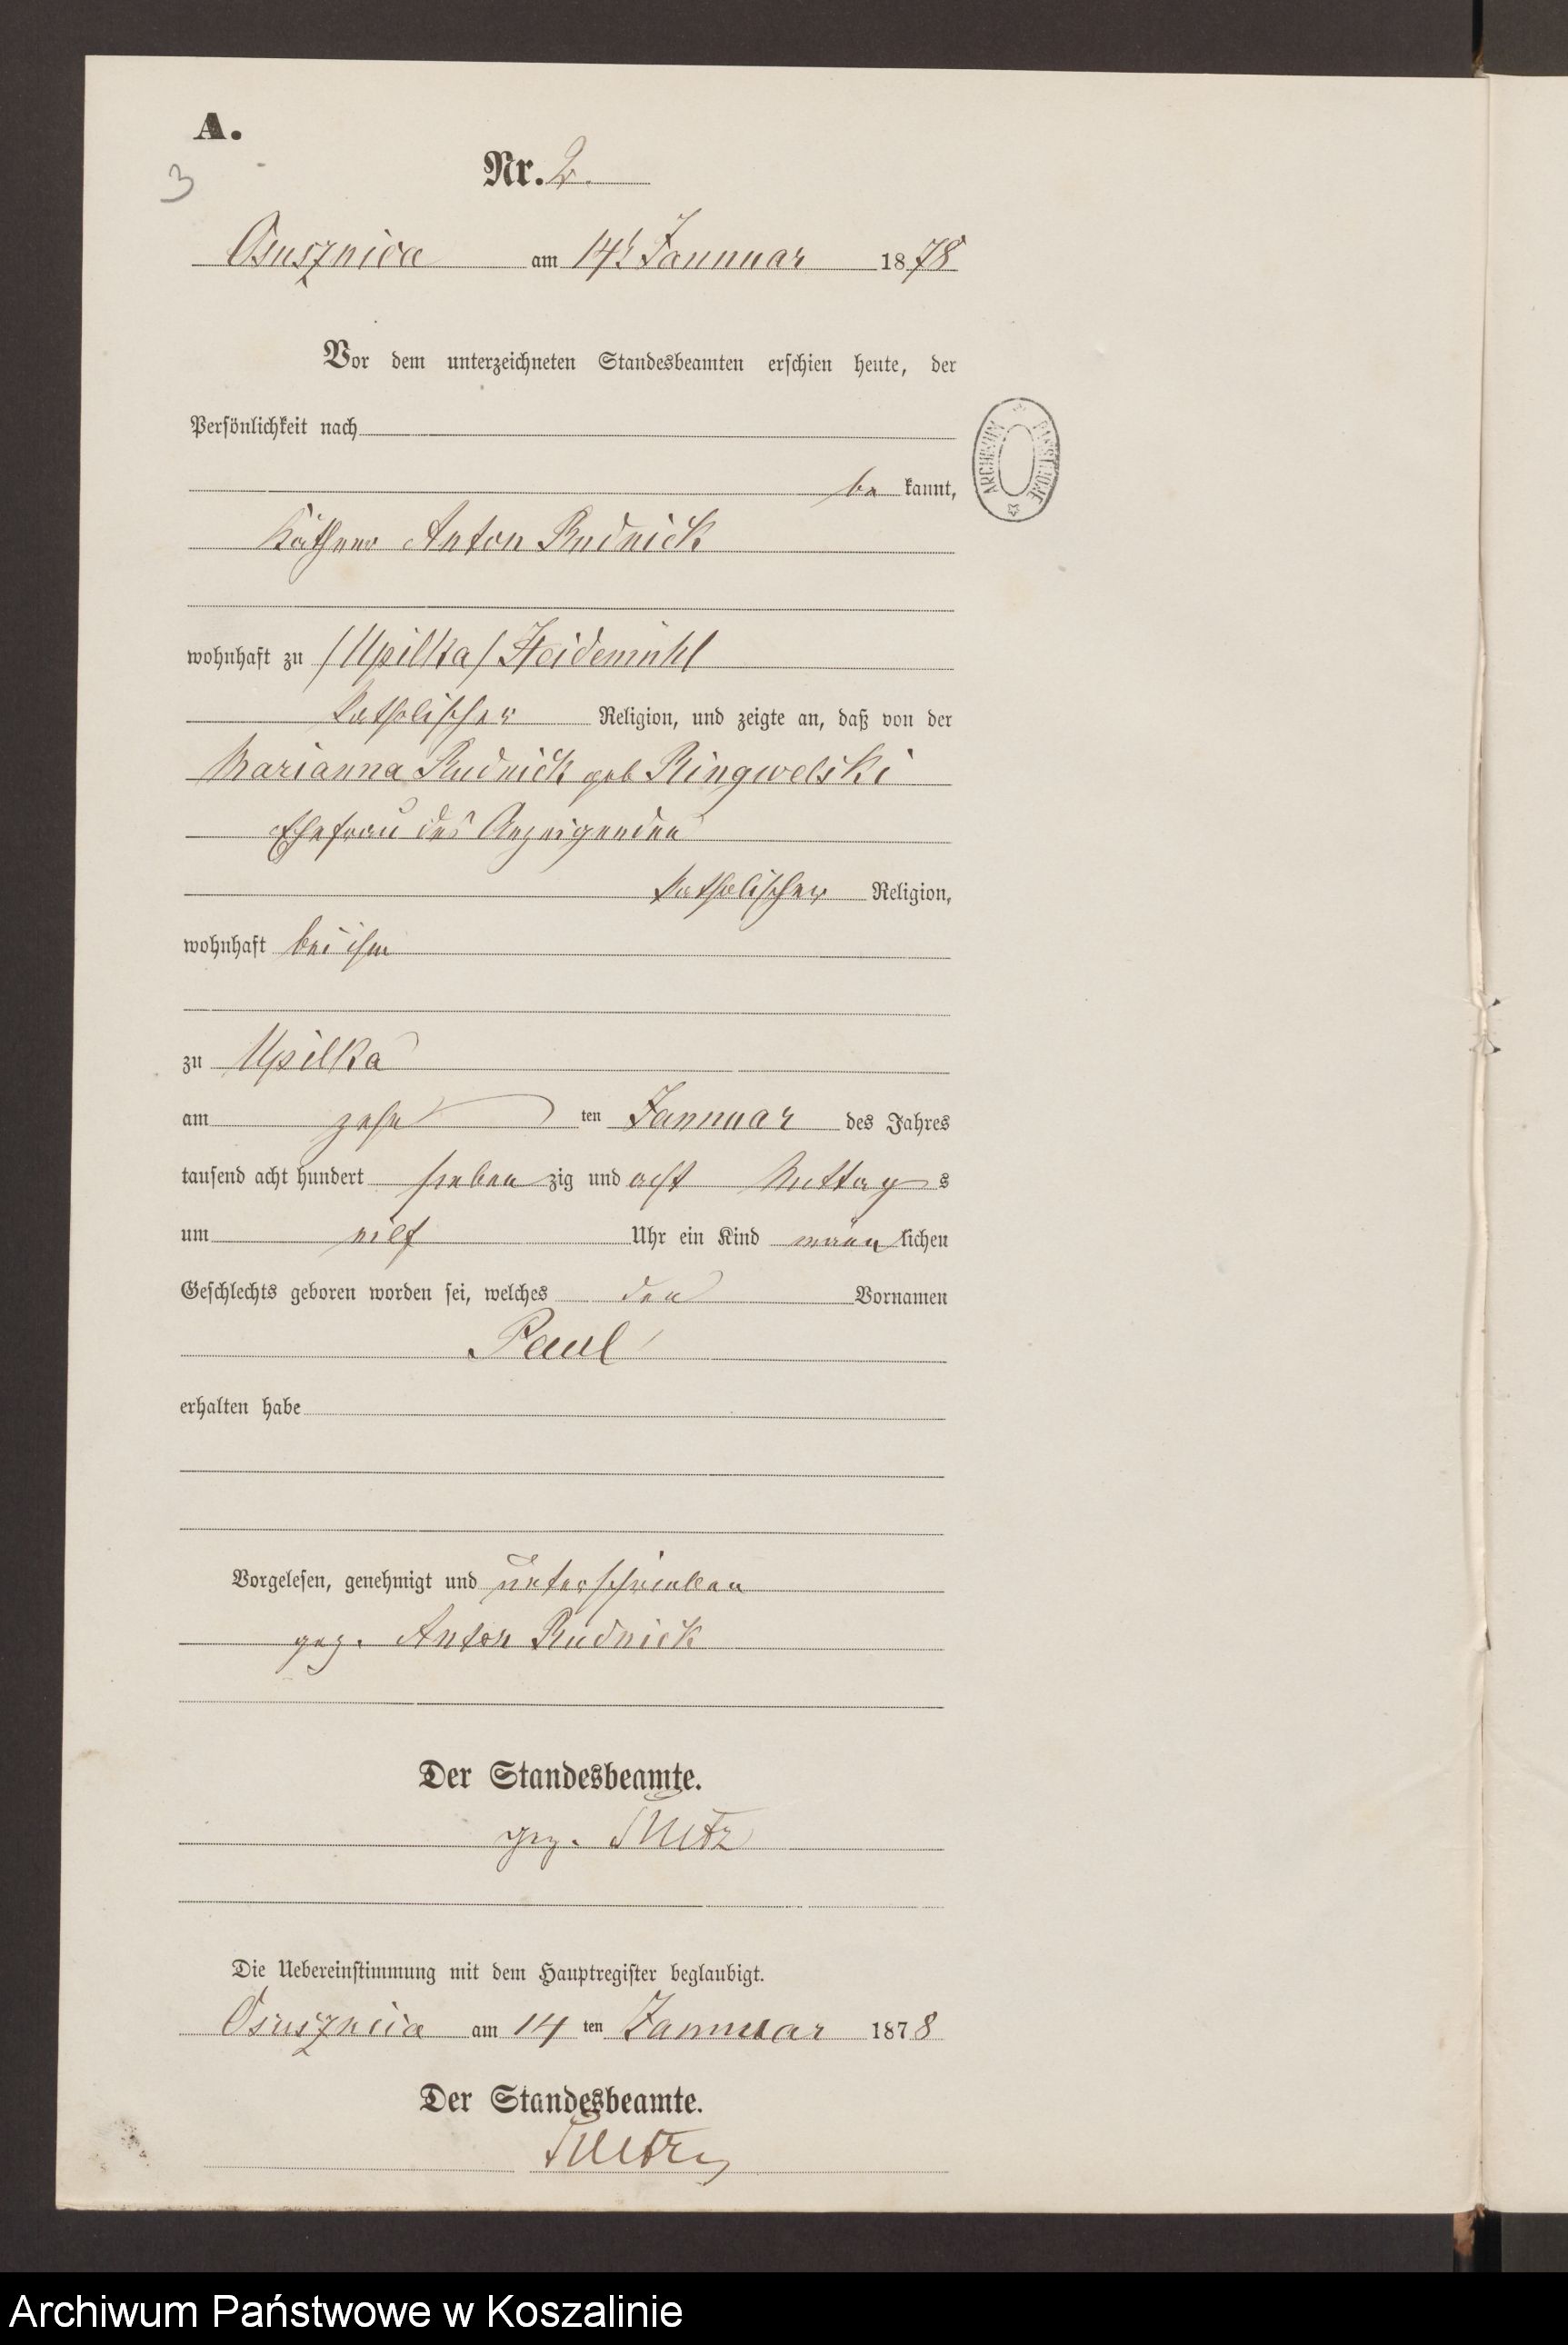 A.
3
Nr. 2.
Osusznica am 14t Jannuar 1878
Vor dem unterzeichneten Standesbeamten erschien heute, der
Persönlichkeit nach
be kannt,
Käthner Anton Rudnick
wohnhaft zu /Upilka/ Heidemühl
katholischer Religion, und zeigte an, daß von der
Marianna Rudnick geb Ringwelski
Ehefrau des Anzeigenden
katholischer Religion,
wohnhaft bei ihm
zu Upilka
am zehn ten Jannuar des Jahres
tausend acht hundert sieben zig und acht Mittag s
um eilf Uhr ein Kind männ lichen
Geschlechts geboren worden sei, welches den Vornamen
Paul
erhalten habe
Vorgelesen, genehmigt und unterschrieben
gez. Anton Rudnick
Der Standesbeamte.
gez.
Die Uebereinstimmung mit dem Hauptregister beglaubigt.
Osusznica am 14 ten Jannuar 1878
Der Standesbeamte.
ARCHIWUM PAŃSTWOWE
Archiwum Państwowe w Koszalinie